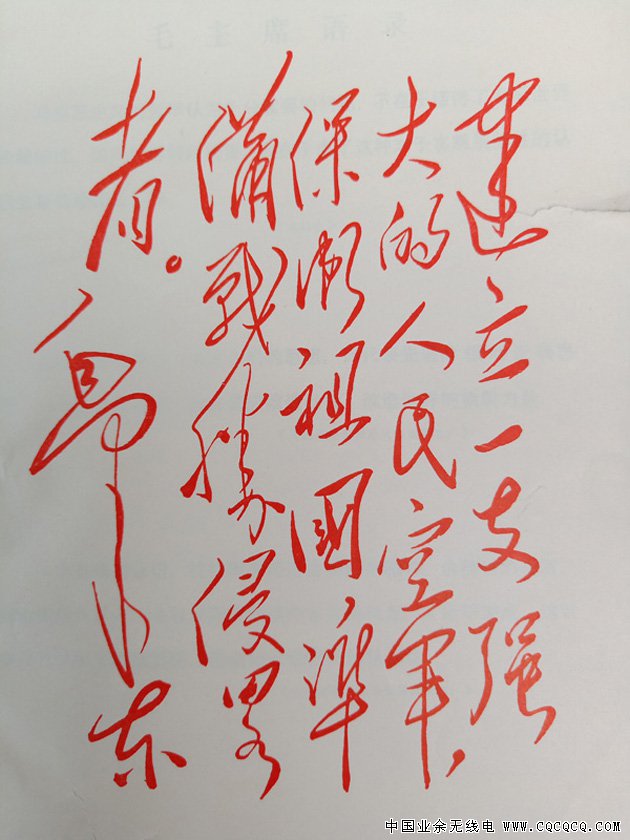 毛主席语录
建立一支强
大的人民空軍，
保衛祖國，準
備戰勝侵略
者。
毛泽东
中国业余无线电 www.cqcqcq.com